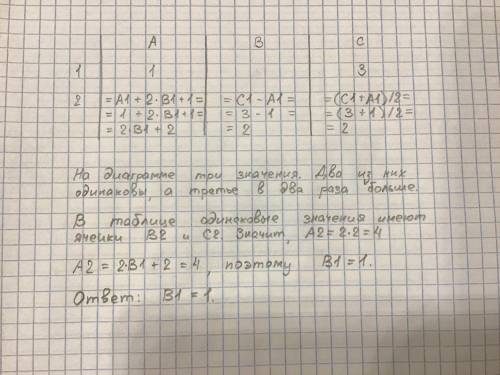 A B C
1 1 3
2 =A1+2·B1+1= =C1-A1= =(C1+A1)/2=
=1+2·B1+1= =3-1= =(3+1)/2=
=2·B1+2 =2 =2
На диаграмме три значения. Два из них
одинаковы, а третье в два раза больше.
В таблице одинаковые значения имеют
ячейки B2 и C2. Значит, A2=2·2=4
A2=2·B1+2=4, поэтому B1=1.
Ответ: B1=1.